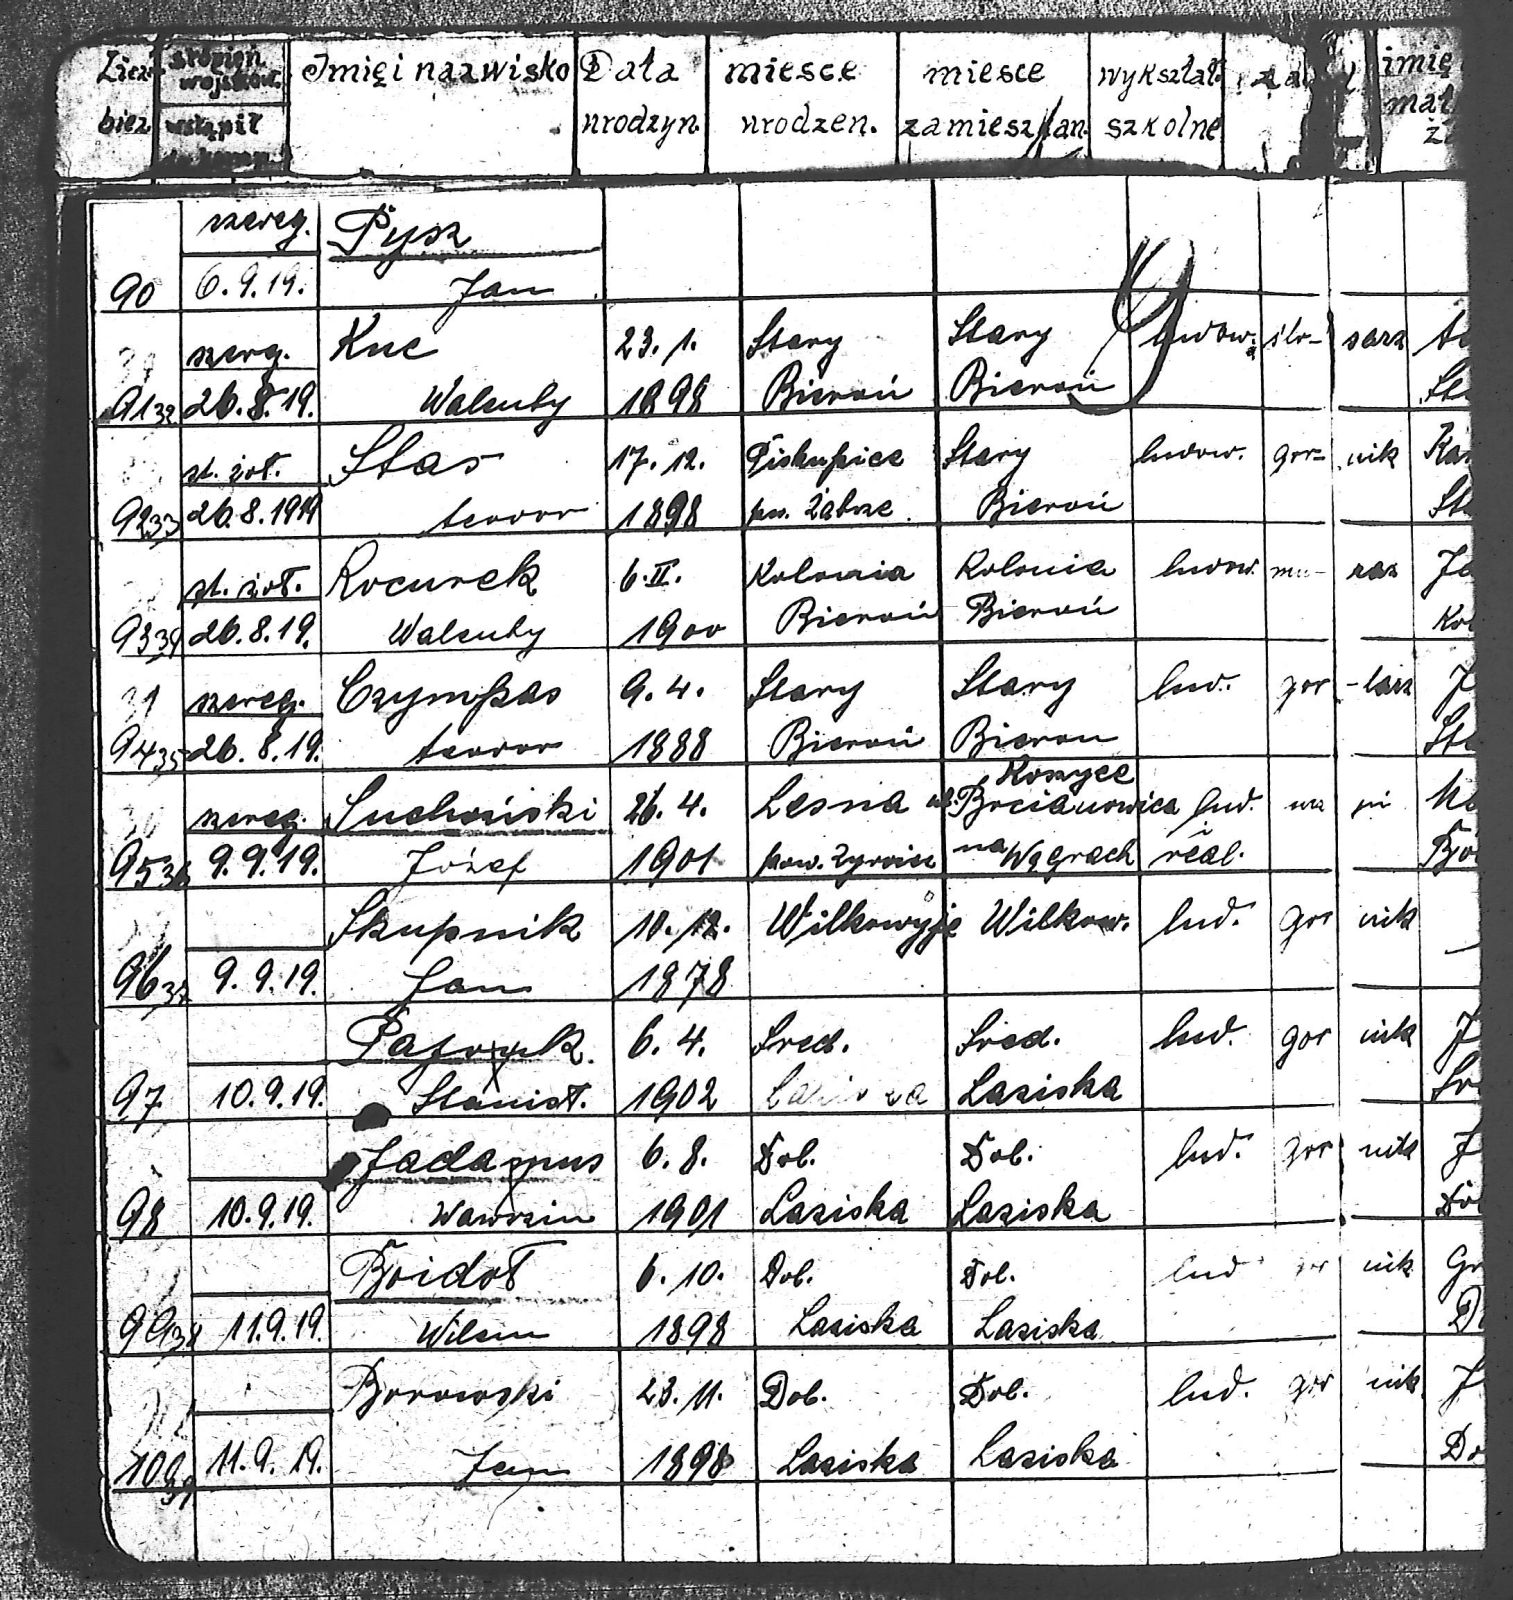 stopień Imię i nazwisko Data miesce miesce wykształ. imię
wojskow.
bież. wstąpił urodzyn. urodzen. zamieszkan. szkolne
szereg. Pysz
90 6.9.19. Jan
szerg. Kuc 23. 1. Stary Stary ślu- sarz
91 32 26.8.19. Walenty 1898 Bieruń Bieruń
st. żoł. Stas 17. 12. Biskupice Stary ludow. gor- nik
92 33 26.8.1919 teodor 1898 pow. Zabrze Bieruń
st. żoł. Kocurek 6. II. Kolonia Kolonia ludow. mu- raz
93 34 26.8.19. Walenty 1900 Bieruń Bieruń
31 szereg. Czympas 9. 4. Stary Stary lud.
94 35 26.8.19. teodor 1888 Bieruń Bierun
Koszyce
szereg. Suchoński 26. 4. Lesna lud.
95 36 9.9.19. Józef 1901 na Węgrach real.
Skupnik 10. 12. Wilkowyje Wilkow. lud. gor nik
96 37 9.9.19. Jan 1878
6. 4. Sred. Sred. lud. gor nik J
97 10.9.19. Stanisł. 1902 Laziska
Jadampus 6. 8. Dol. Dol. lud. gor nik J
98 10.9.19. Wawrzin 1901 Laziska Laziska
Boidoł 6. 10. Dol. Dol. lud gor nik
99 38 11.9.19. Wilem 1898 Laziska Laziska
Borowski 23. 11. Dol. Dol. lud. gor nik J
100 39 11.9.19. Jan 1898 Laziska Laziska